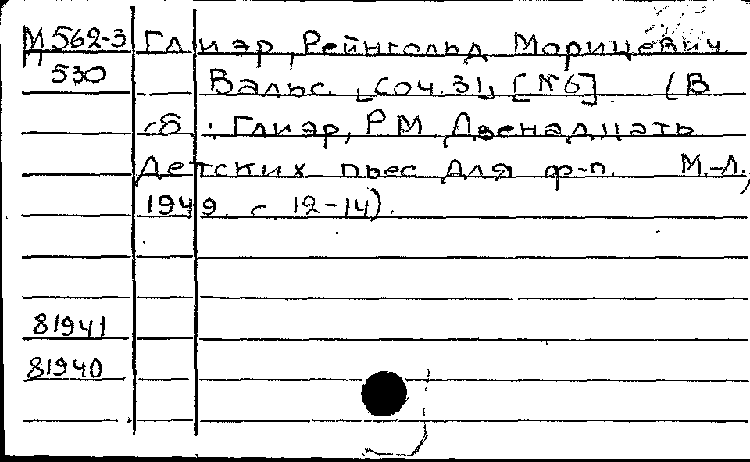 М 562-3 Глиэр, Рейнгольд Морицевич
530 Вальс. [Соч. 31] [№6] (В
сб.: Глиэр, Р.М. Двенадцать
детских пьес для ф-п. М.-Л.,
1949. с. 12-14).
81941
81940